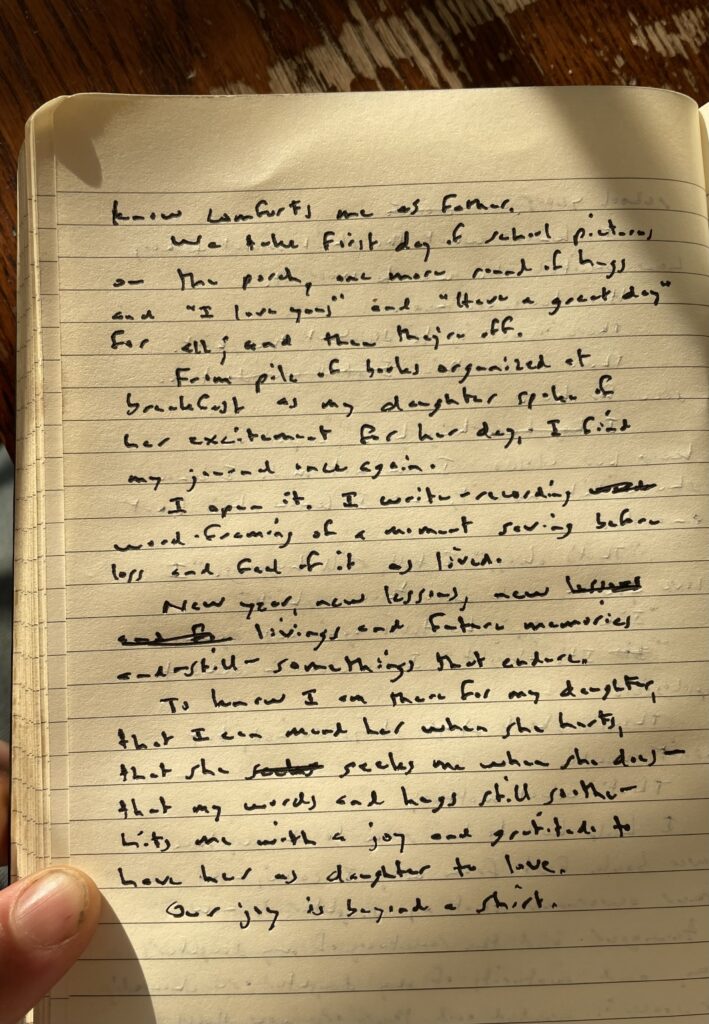 know comforts me as father.
We take first day of school pictures
on the porch, one more round of hugs
and "I love you," and "Have a great day"
for all; and then they're off.
From pile of books organized at
breakfast as my daughter spoke of
her excitement for her day, I find
my journal once again.
I open it. I write-recording
word-framing of a moment saving before
loss and fad of it as lived.
New year, new lessons, new
livings and future memories
and-still- somethings that endure.
To know I am there for my daughter,
that I can mend her when she hurts,
that she seeks me when she does-
that my words and hugs still soothe-
hits me with a joy and gratitude to
have her as daughter to love.
Our joy is beyond a shirt.